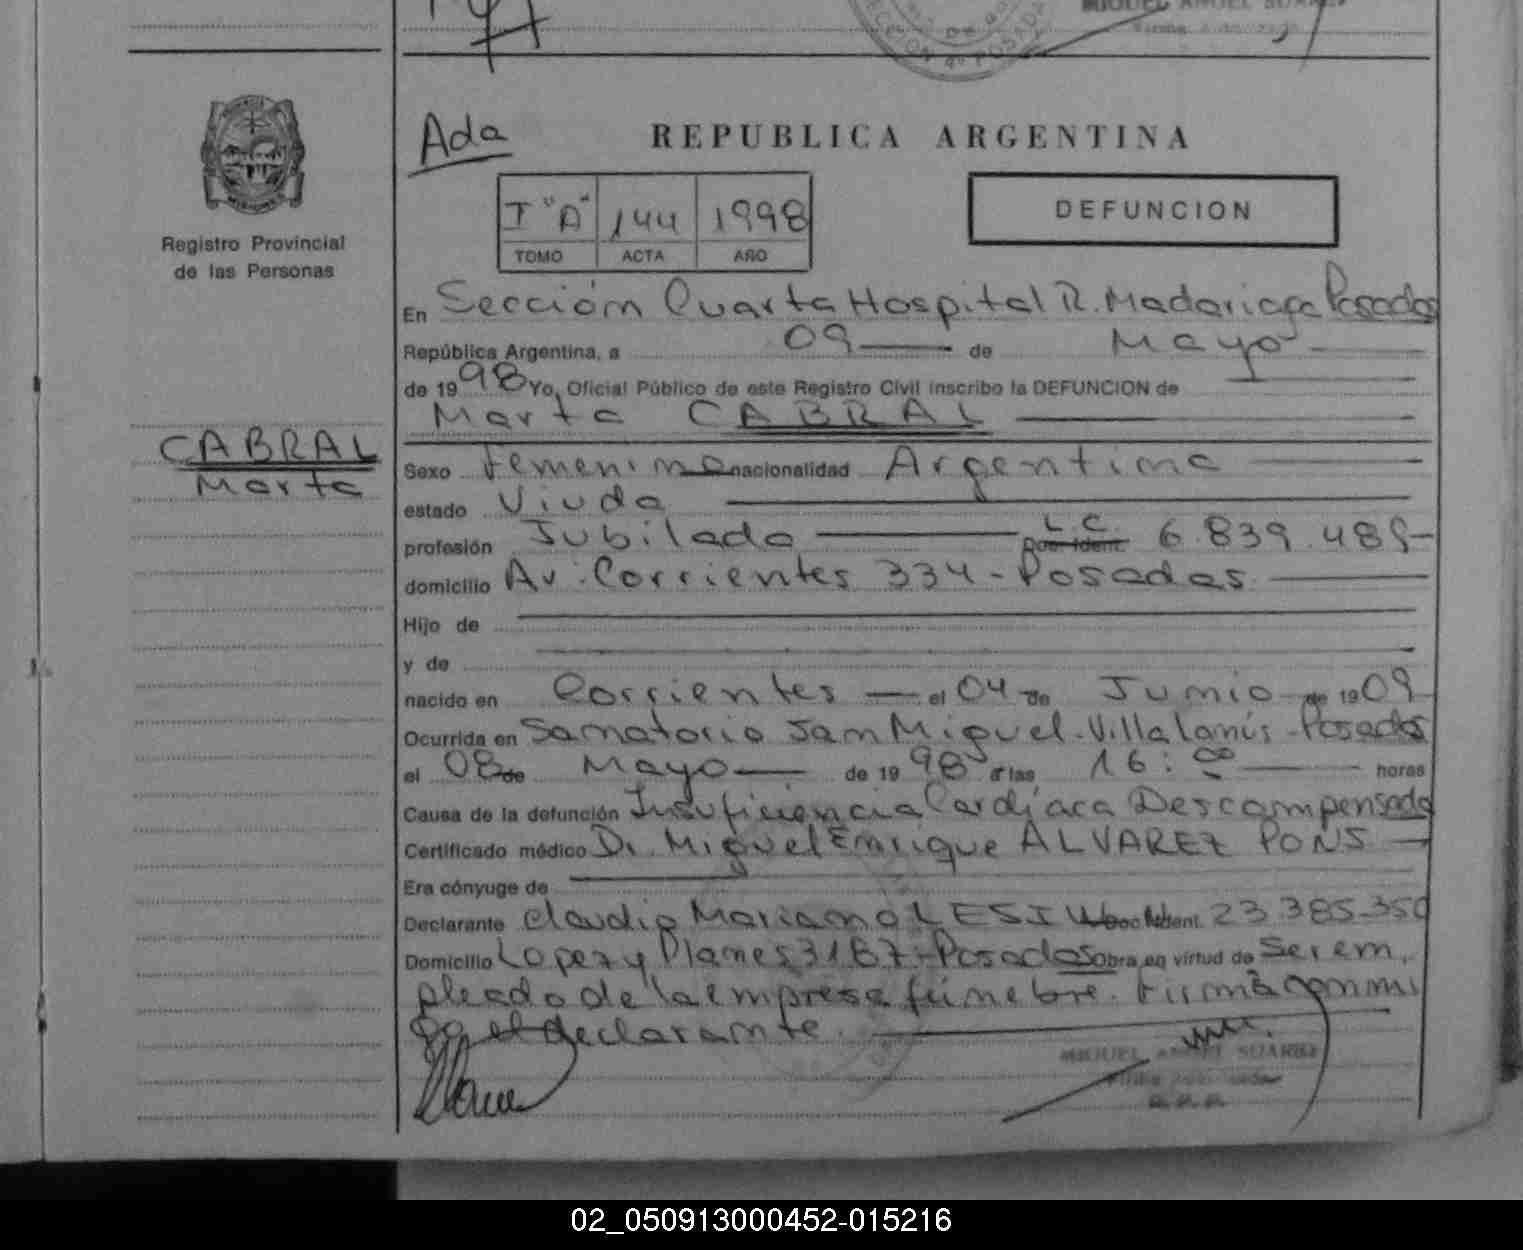 MIGUEL ANGEL SUAREZ
Ada
REPUBLICA ARGENTINA
T "A" 144 1998
TOMO ACTA AÑO
DEFUNCION
Registro Provincial
de las Personas
En Sección Cuarta Hospital R. Madariaga Posadas
República Argentina, a 09 de Mayo
de 1998 Yo, Oficial Público de este Registro Civil inscribo la DEFUNCION de
Marta CABRAL
CABRAL
Marta
Sexo femenino nacionalidad Argentina
estado Viuda
profesión Jubilada L.C. Doc. Ident. 6.839.489
domicilio Av. Corrientes 334 - Posadas
Hijo de
y de
nacido en Corrientes el 04 de Junio de 1909
Ocurrida en Sanatorio San Miguel - Villa Lanús - Posadas
el 08 de Mayo de 1998 a las 16:00 horas
Causa de la defunción Insuficiencia Cardíaca Descompensada
Certificado médico Dr. Miguel Enrique ALVAREZ PONS
Era cónyuge de
Declarante Claudio Mariano LESIW Doc. Ident. 23.385.350
Domicilio Lopez y Planes 3187 - Posadas Obra en virtud de Ser em-
pleado de la empresa fúnebre. Firma conmi
go el declarante.
MIGUEL ANGEL SUAREZ
02_050913000452-015216